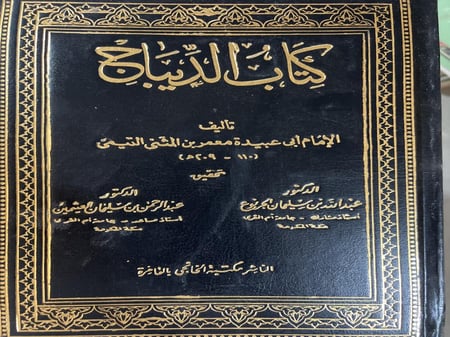 كتاب الديباج
تأليف
الإمام أبي عبيدة معمر بن المثنى التيمي
(١١٠ - ٢٠٩ هـ)
تحقيق
الدكتور
عبد الله بن سليمان الجربوع
أستاذ مشارك - جامعة أم القرى
مكة المكرمة
الدكتور
عبد الرحمن بن سليمان العثيمين
أستاذ مساعد - جامعة أم القرى
مكة المكرمة
الناشر مكتبة الخانجي بالقاهرة